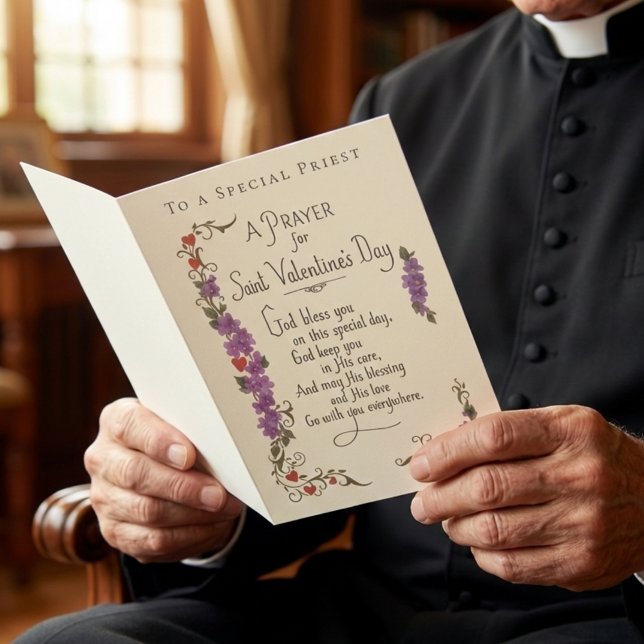 To a Special Priest
A Prayer
for
Saint Valentine's Day
God bless you
on this special day,
God keep you
in His care,
And may His blessing
and His love
Go with you everywhere.